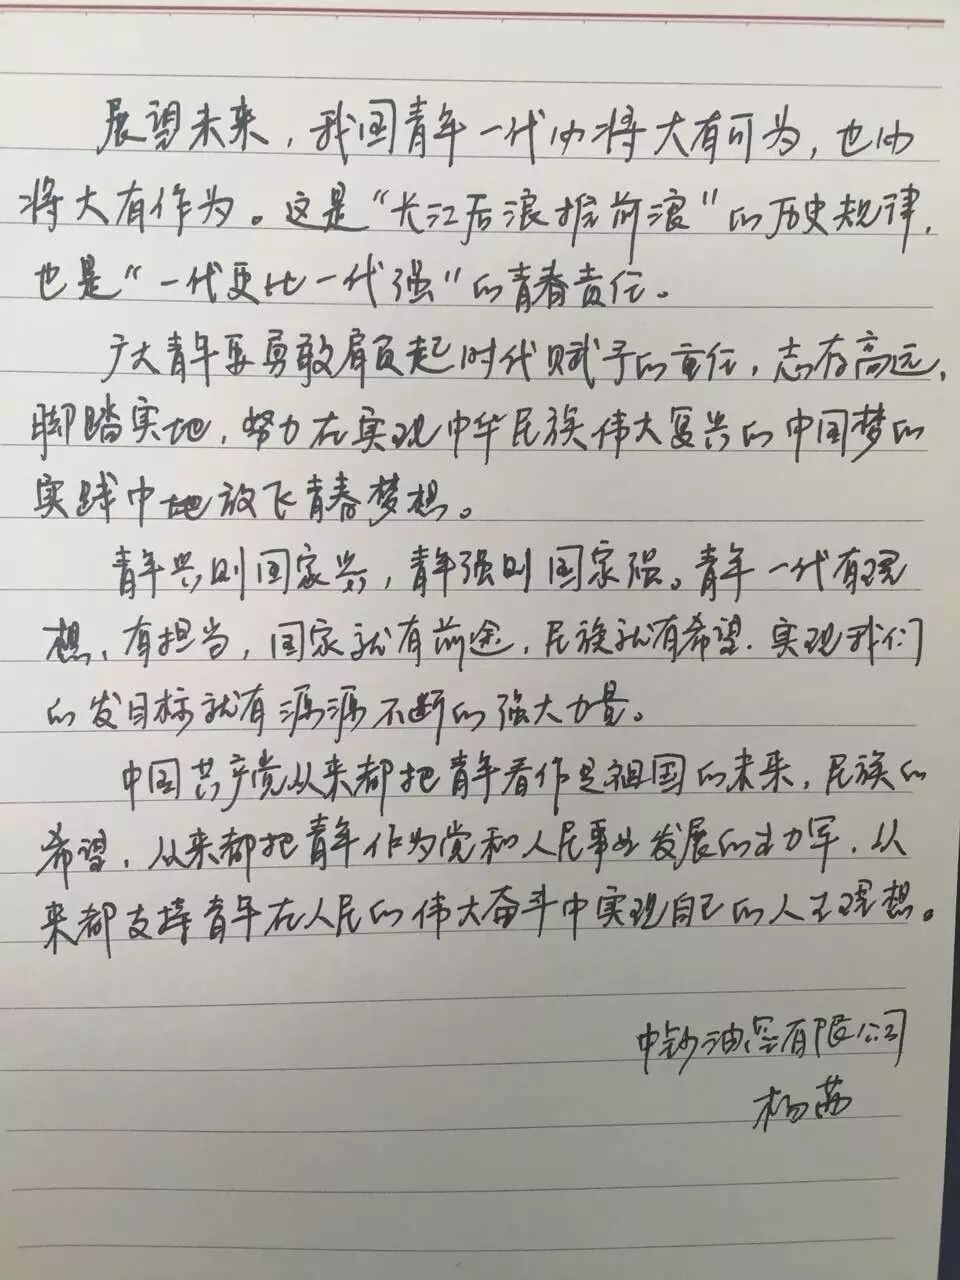 展望未来，我国青年一代必将大有可为，也必
将大有作为。这是“长江后浪推前浪”的历史规律，
也是“一代更比一代强”的青春责任。
广大青年要勇敢肩负起时代赋予的重任，志存高远，
脚踏实地，努力在实现中华民族伟大复兴的中国梦的
实践中地放飞青春梦想。
青年兴则国家兴，青年强则国家强。青年一代有理
想、有担当，国家就有前途，民族就有希望，实现我们
的发目标就有源源不断的强大力量。
中国共产党从来都把青年看作是祖国的未来，民族的
希望，从来都把青年作为党和人民事业发展的主力军，从
来都支持青年在人民的伟大奋斗中实现自己的人生理想。
中钞油墨有限公司
杨茜